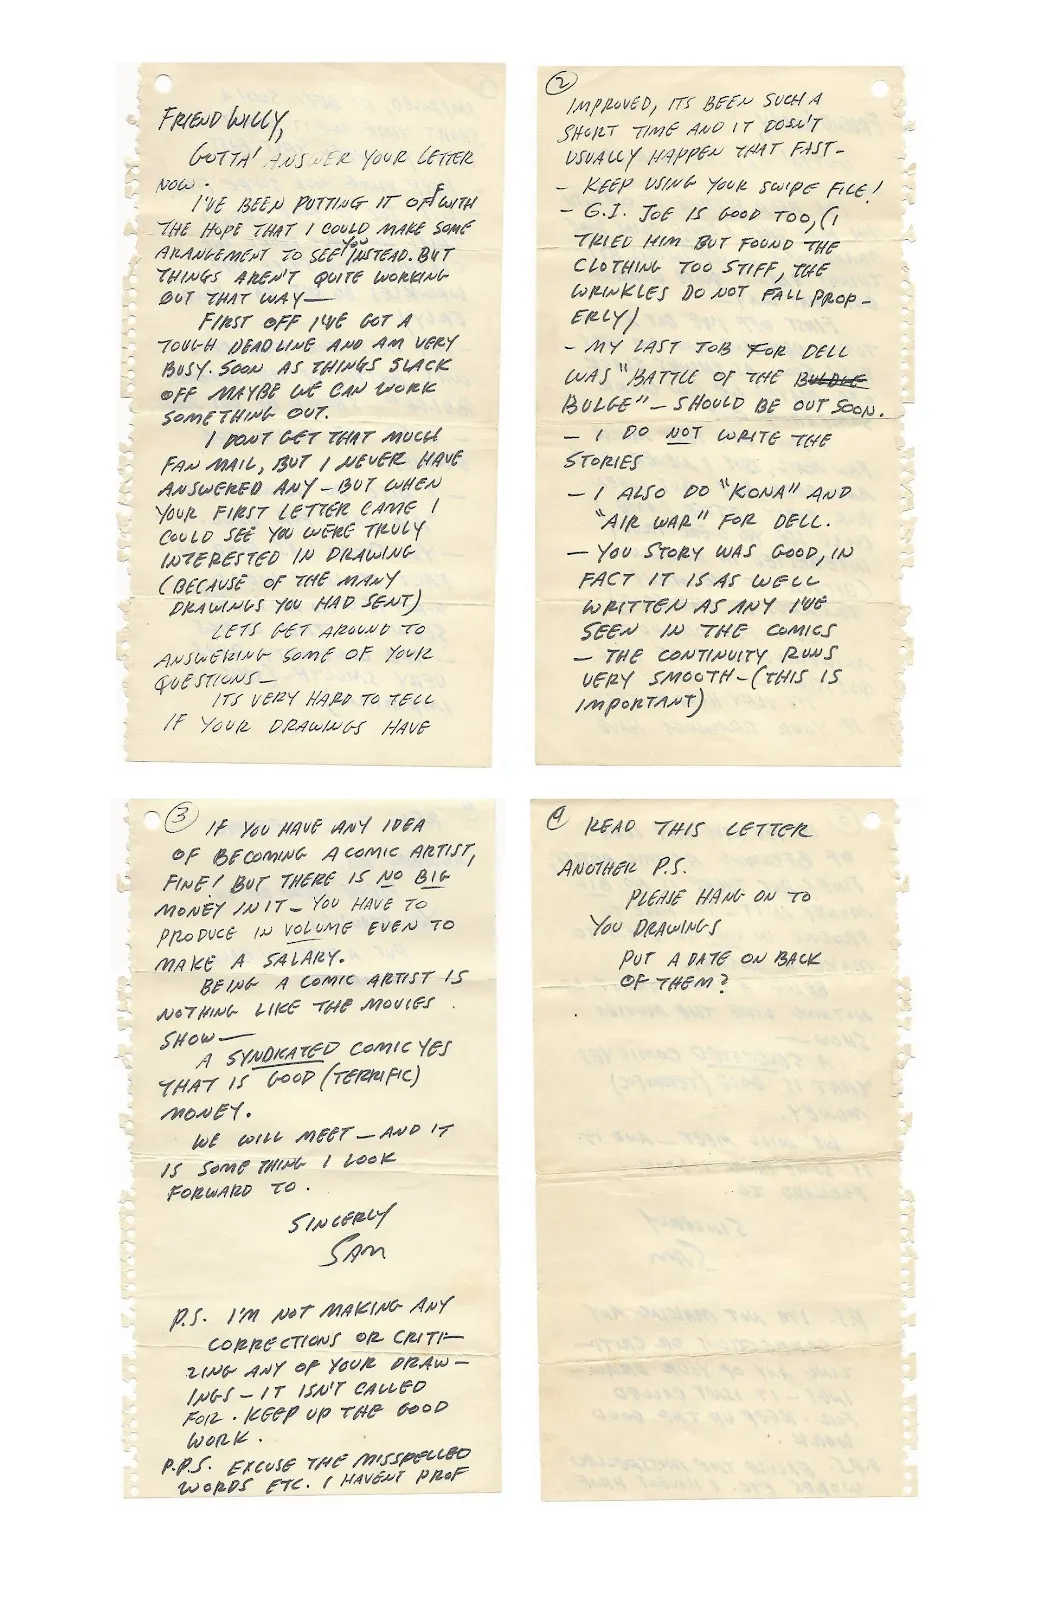 FRIEND WILLY,
GOTTA' ANSWER YOUR LETTER
NOW.
I'VE BEEN PUTTING IT OFF WITH
THE HOPE THAT I COULD MAKE SOME
ARANGEMENT TO SEE YOU INSTEAD. BUT
THINGS AREN'T QUITE WORKING
OUT THAT WAY—
FIRST OFF I'VE GOT A
TOUGH DEADLINE AND AM VERY
BUSY. SOON AS THINGS SLACK
OFF MAYBE WE CAN WORK
SOMETHING OUT.
I DON'T GET THAT MUCH
FAN MAIL, BUT I NEVER HAVE
ANSWERED ANY — BUT WHEN
YOUR FIRST LETTER CAME I
COULD SEE YOU WERE TRULY
INTERESTED IN DRAWING
(BECAUSE OF THE MANY
DRAWINGS YOU HAD SENT)
LETS GET AROUND TO
ANSWERING SOME OF YOUR
QUESTIONS—
ITS VERY HARD TO TELL
IF YOUR DRAWINGS HAVE
2
IMPROVED, ITS BEEN SUCH A
SHORT TIME AND IT DOSN'T
USUALLY HAPPEN THAT FAST—
- KEEP USING YOUR SWIPE FILE!
- G.I. JOE IS GOOD TOO, (I
TRIED HIM BUT FOUND THE
CLOTHING TOO STIFF, THE
WRINKLES DO NOT FALL PROP-
ERLY)
- MY LAST JOB FOR DELL
WAS "BATTLE OF THE BULDLE
BULGE" — SHOULD BE OUT SOON.
- I DO NOT WRITE THE
STORIES
- I ALSO DO "KONA" AND
"AIR WAR" FOR DELL.
— YOU STORY WAS GOOD, IN
FACT IT IS AS WELL
WRITTEN AS ANY I'VE
SEEN IN THE COMICS
— THE CONTINUITY RUNS
VERY SMOOTH — (THIS IS
IMPORTANT)
3
IF YOU HAVE ANY IDEA
OF BECOMING A COMIC ARTIST,
FINE! BUT THERE IS NO BIG
MONEY IN IT — YOU HAVE TO
PRODUCE IN VOLUME EVEN TO
MAKE A SALARY.
BEING A COMIC ARTIST IS
NOTHING LIKE THE MOVIES
SHOW—
A SYNDICATED COMIC YES
THAT IS GOOD (TERRIFIC)
MONEY.
WE WILL MEET — AND IT
IS SOMETHING I LOOK
FORWARD TO.
SINCERLY
SAM
P.S. I'M NOT MAKING ANY
CORRECTIONS OR CRITI-
ZING ANY OF YOUR DRAW-
INGS — IT ISN'T CALLED
FOR. KEEP UP THE GOOD
WORK.
P.P.S. EXCUSE THE MISSPELLED
WORDS ETC. I HAVENT PROF
4
READ THIS LETTER
ANOTHER P.S.
PLEASE HANG ON TO
YOU DRAWINGS
PUT A DATE ON BACK
OF THEM?